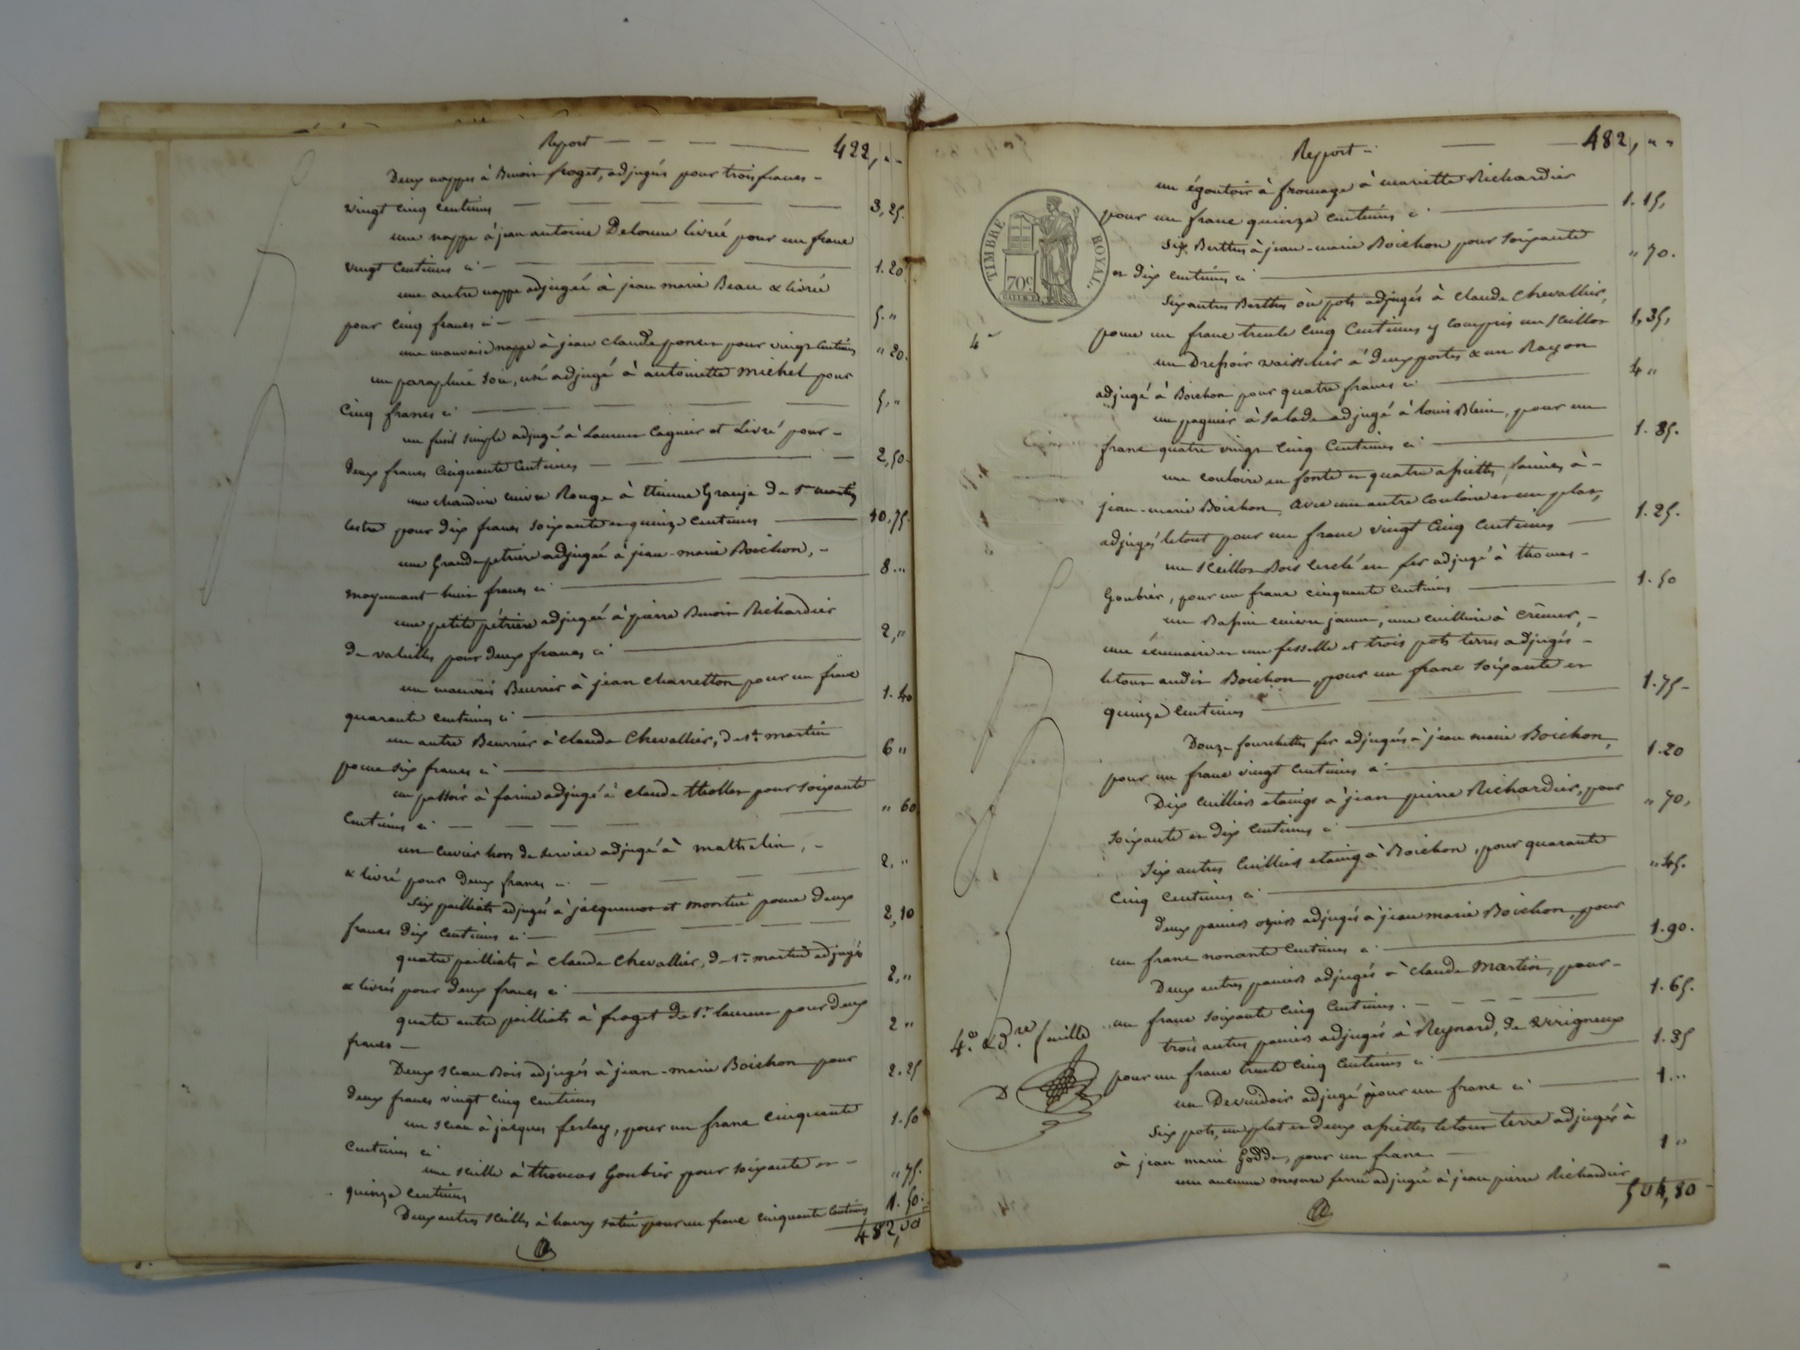 Report — — — — 422, " "
Deux nappes à Benoit froget, adjugés pour trois francs -
vingt cinq centimes — — — — — 3,25.
une nappe à jean antoine Delorme livrée pour un franc
vingt centimes ci — 1.20
une autre nappe adjugée à jean marie Beau & livrée
pour cinq francs ci — 5. "
une mauvaise nappe à jean claude poncet pour vingt centimes " 20.
un parapluie soie, usé adjugé à antoinette michel pour
cinq francs ci — 5, "
un fusil simple adjugé à Laurent Cognier et Livré pour -
deux francs cinquante centimes — 2,50.
une chaudiere cuivre Rouge à Etienne Grange de St martin
lestra pour dix francs soixante et quinze centimes — 10.75.
une Grande pétriere adjugée à jean-marie Boichon, -
moyennant huit francs ci — 8 "
une petite pétriere adjugée à pierre Benoit Richardier
de valeilles pour deux francs ci — 2, "
un mauvais Beurrier à jean Charretton pour un franc
quarante centimes ci — 1.40
un autre Beurrier à Claude Chevallier, de St martin
pour six francs ci — 6 "
un passoir à farine adjugé à Claude thollet pour soixante
centimes ci — " 60
un cuvier hors de service adjugé à mathelin, -
& livré pour deux francs ci — 2, "
Six paillats adjugés à jacquemot et montué pour deux
francs dix centimes ci — 2,10
quatre paillats à Claude Chevallier, de St martin adjugés
& livrés pour deux francs ci — 2, "
quatre autre paillats à froget de St laurent pour deux
francs — 2 "
Deux sceau Bois adjugés à jean-marie Boichon pour
deux francs vingt cinq centimes 2.25
un sceau à jacques ferlay, pour un franc cinquante
centimes ci 1.50
une seille à thomas Goubier pour soixante et -
quinze centimes " 75.
Deux autres seilles à pour un franc cinquante centimes 1.50.
482,00
Report — — 482, " "
un égoutoir à fromage à mariette Richardier
pour un franc quinze centimes ci — 1.15,
TIMBRE ROYAL
70c.
Six Berthes à jean-marie Boichon pour soixante
et dix centimes ci — " 70.
Six autres Berthes ou pots adjugés à Claude Chevallier,
pour un franc trente cinq centimes y compris un seillon 1,35,
un Dressoir vaisselier à deux portes & un Rayon
adjugé à Boichon pour quatre francs ci — 4 "
un pagnier à Salade adjugé à louis Blein, pour un
franc quatre vingt cinq centimes ci — 1.85.
une couloire en fonte et quatre assiettes, à -
jean-marie Boichon, avec une autre couloire et un plat,
adjugés letout pour un franc vingt cinq centimes — 1.25.
un seillon Bois cerclé en fer adjugé à thomas -
Goubier, pour un franc cinquante centimes — 1.50
un Bassin cuivre jaune, une cuillière à crêmer, -
une écumoire et une fesselle et trois pots terres adjugés -
letout audit Boichon, pour un franc soixante et
quinze centimes — 1.75-
Douze fourchettes fer adjugés à jean marie Boichon,
pour un franc vingt centimes ci — 1.20
Dix cuilliers etaings à jean pierre Richardier, pour
soixante et dix centimes ci — " 70,
Six autres cuilliers etaing à Boichon, pour quarante
cinq centimes ci — " 45.
deux paniers oziers adjugés à jean marie Boichon, pour
un franc nonante centimes ci — 1.90.
Deux autres paniers adjugés à Claude Martin, pour -
un franc soixante cinq centimes. — 1.65.
4e & Dre feuille
trois autres paniers adjugés à Reynard, de Virigneux
pour un franc trente cinq centimes ci — 1.35
un Devindoir adjugé pour un franc ci — 1. "
Six pots, un plat et deux assiettes letout terre adjugés à
à jean marie Godde, pour un franc — 1 "
une ancienne mesure ferrée adjugée à jean pierre Richardier
504,80